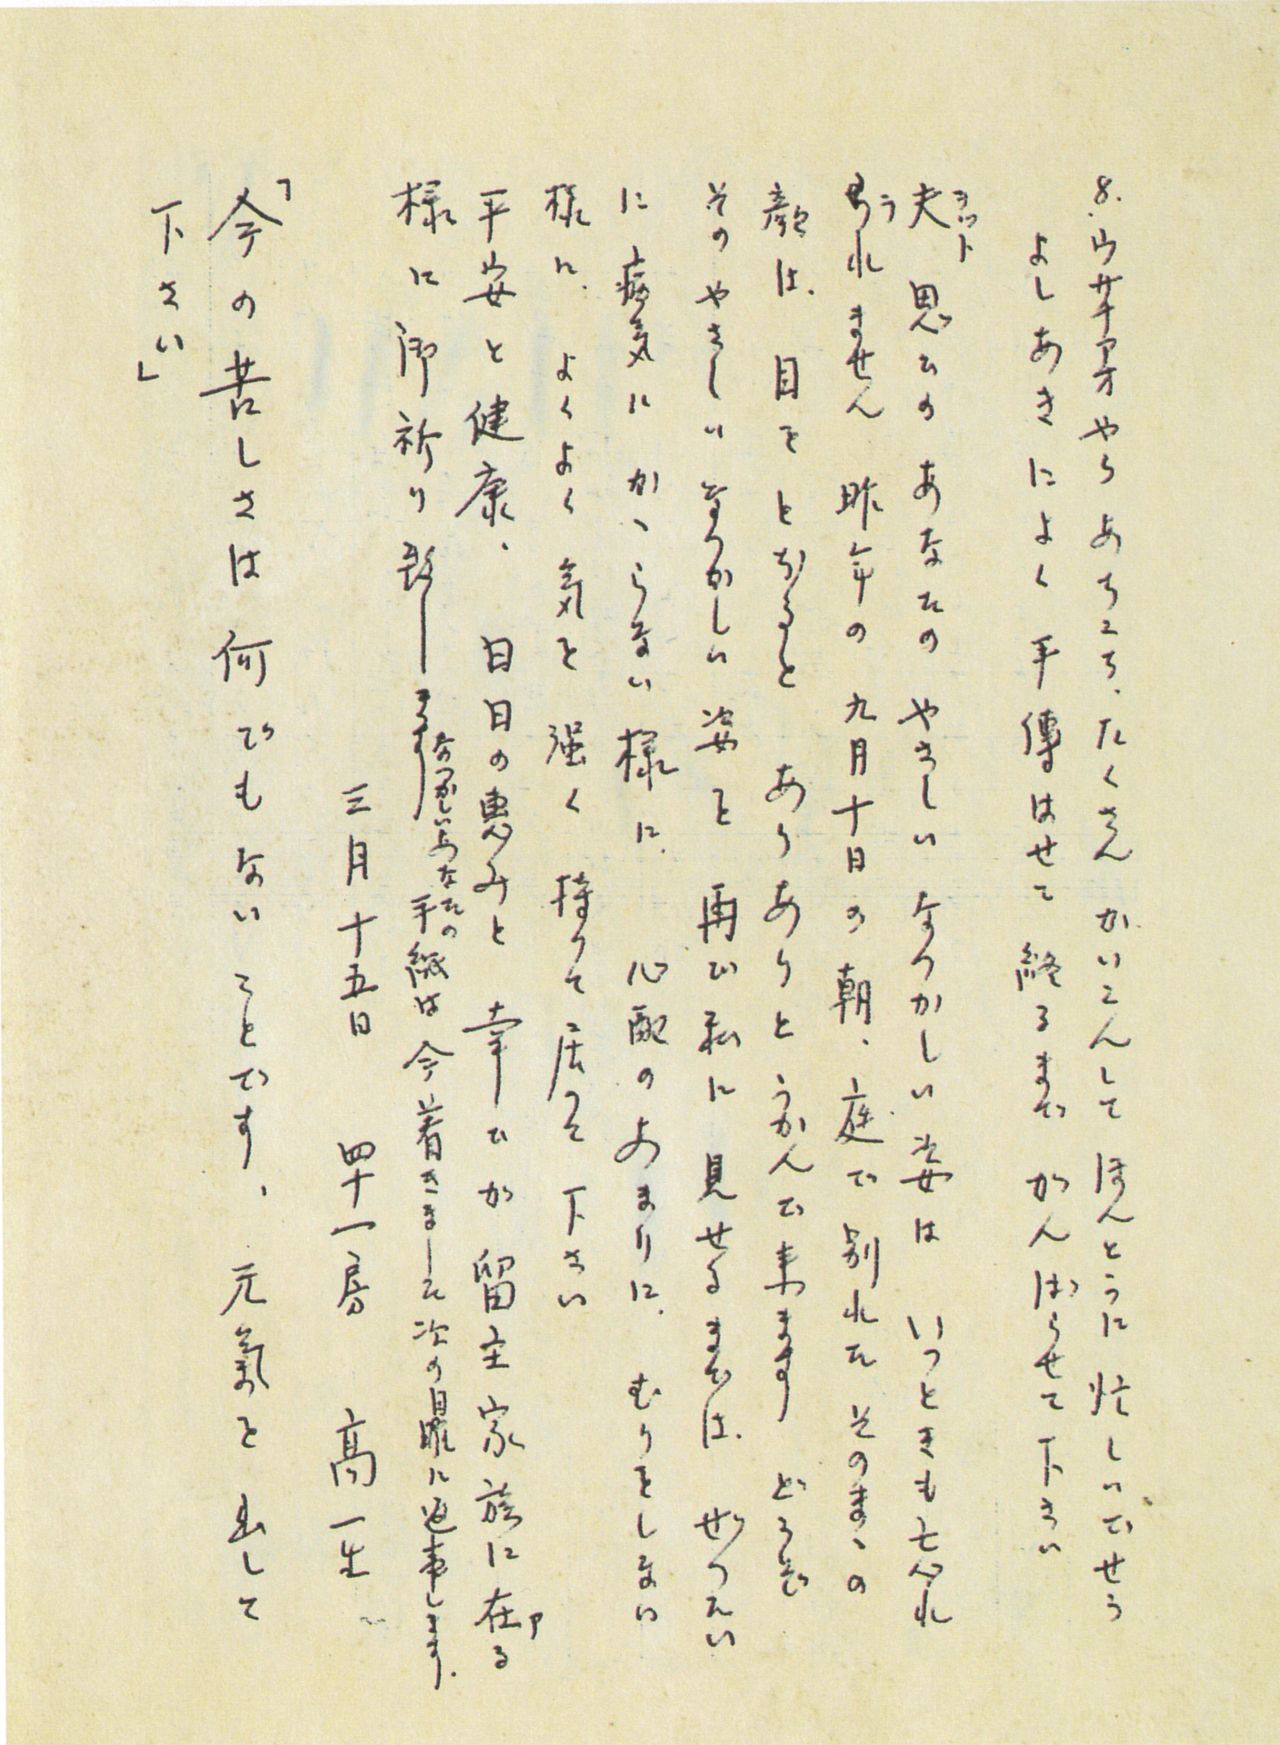 8. ウサギ芽やらあちこち、たくさん かいこんして ほんとうに 忙しいでせう
よしあきによく 手傳はせて 終るまで がんばらせて下さい
夫 思ひの あなたの やさしい なつかしい姿は いつときも忘れ
オット
られません 昨年の 九月十日の 朝、庭で 別れた そのまゝの
顔は、目を とぢると ありありと うかんで来ます どうぞ
そのやさしい なつかしい 姿を 再び私に 見せるまでは、ぜつたい
に 病気に かゝらない様に、心配のあまりに、むりをしない
様に、よくよく 気を 强く 持つて居つて 下さい
平安と健康、日日の恵みと 幸ひが 留主家族に在る
ア
様に 御祈り致します
なつかしいあなたの
手紙は 今着きました 次の日曜に返事します.
三月十五日 四十一房 高一生
「今の苦しさは 何でもない ことです、元氣を 出して
下さい」